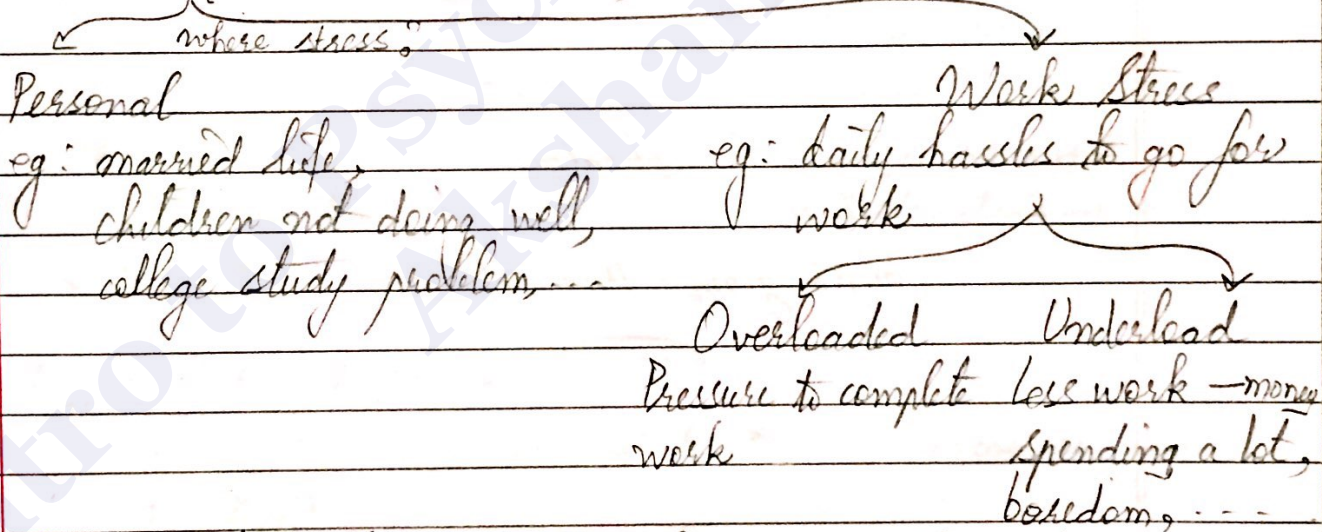 where stress?
Personal
eg: married life,
children not doing well,
college study problem, ...
Work Stress
eg: daily hassles to go for
work
Overloaded
Pressure to complete
work
Underload
Less work — money
spending a lot,
boredom, ....
tro to Psych
Akshan